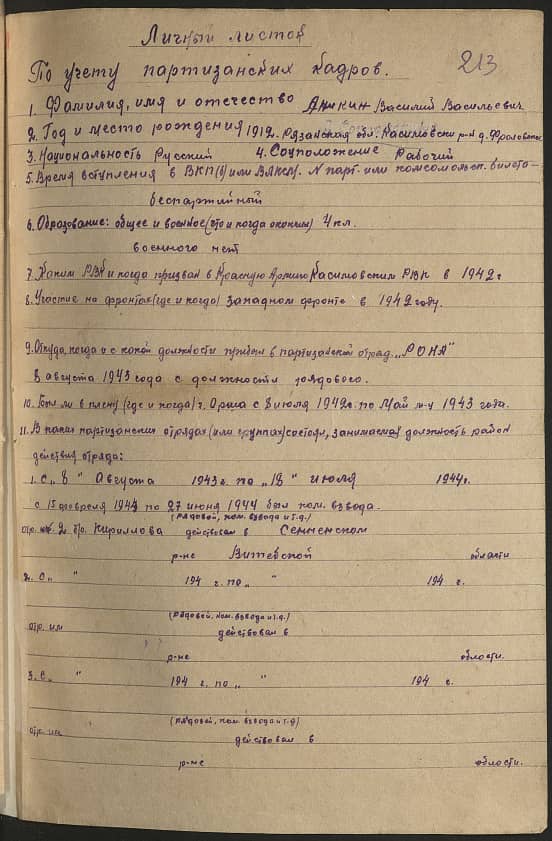 Личный листок
По учету партизанских кадров.
213
1. Фамилия, имя и отчество Аникин Василий Васильевич
2. Год и место рождения 1912 г. Рязанская обл. Касимовски р-н д.
3. Национальность Русский 4. Соцположение Рабочий
5. Время вступления в ВКП(б) или ВЛКСМ. N парт. или комсомольск. билета-
беспартийный
6. Образование: общее и военное (что и когда окончил) 4 кл.
военного нет
7. Каким РВК и когда призван в Красную Армию Касимовским РВК в 1942 г
8. Участие на фронтах (где и когда) Западном фронте в 1942 году.
9. Откуда, когда и с какой должности прибыл в партизанский отряд „РОНА"
8 августа 1943 года с должности рядового.
10. Был ли в плену (где и когда) г. Орша с 8 июля 1942г. по Май м-ц 1943 года.
11. В каких партизанских отрядах (или группах) состоял, занимаемая должность район
действия отряда:
1. С „ 8 " Августа 1943 г. по „18" июля 1944 г.
с 15 февраля 1944 по 27 июня 1944 был пом. взвода.
(рядовой, пом. взвода и т.д.)
отр. 2 бр. Кириллова действовал в Сенненском
р-не Витебской области
2. С „ " 194 г. по „ " 194 г.
(рядовой, пом. взвода и т.д.)
отр. им действовал в
р-не области.
3. С „ " 194 г. по „ " 194 г.
(рядовой, пом. взвода и т.д)
отр. им действовал в
р-не области.